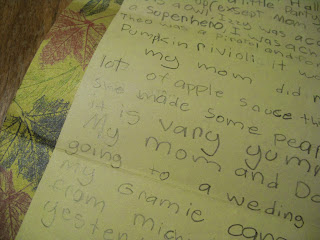 Hall
a little Party
except Mom
was
a Sepenhero, I was a co
Theo was a pirate and
Pumpkin rivioli. it w
my mom did m
lot of apple sauce th
she made some pear
it is vary yumm
My mom and Da
going to a weding
my Gramie came
from mich
yester